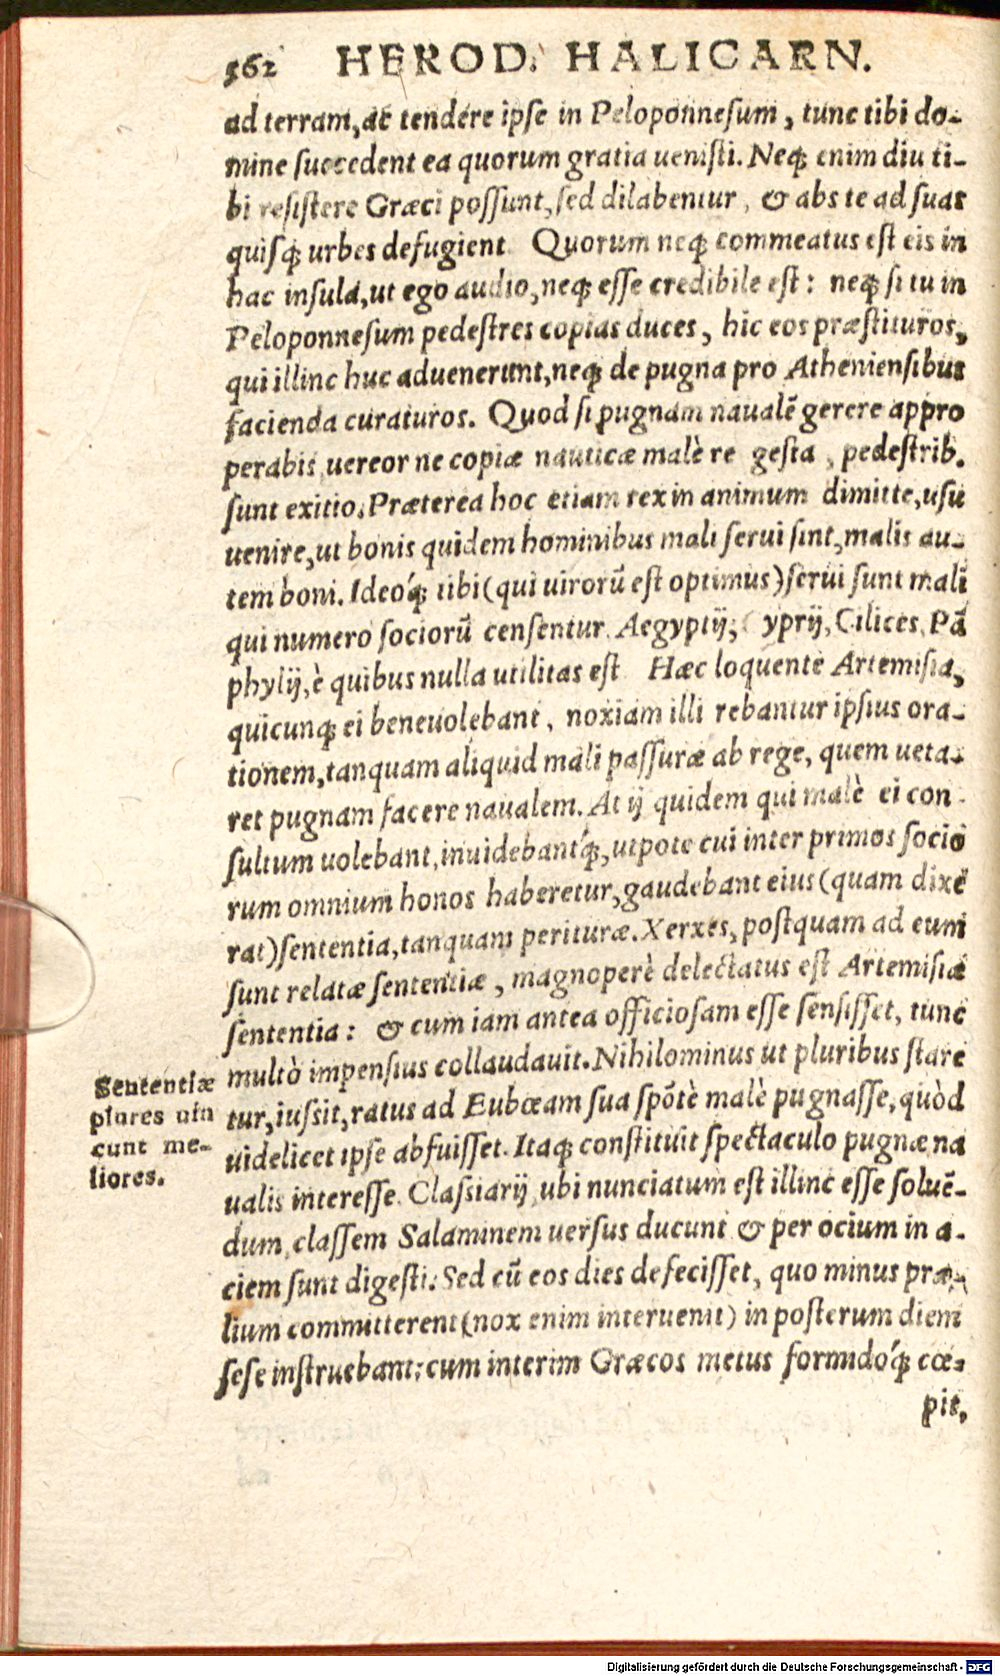 562 HEROD. HALICARN.
ad terram, ac tendere ipſe in Peloponneſum, tunc tibi do-
mine ſuccedent ea quorum gratia ueniſti. Neq; enim diu ti-
bi reſiſtere Græci poſſunt, ſed dilabentur, & abs te ad ſuas
quiſq; urbes defugient. Quorum neq; commeatus eſt eis in
hac inſula, ut ego audio, neq; eſſe credibile eſt: neq; ſi tu in
Peloponneſum pedeſtres copias duces, hic eos præſtituros,
qui illinc huc aduenerunt, neq; de pugna pro Athenienſibus
facienda curaturos. Quod ſi pugnam naualē gerere appro
perabis, uereor ne copiæ nauticæ malè re geſta, pedeſtrib.
ſunt exitio. Præterea hoc etiam rex in animum dimitte, uſu
uenire, ut bonis quidem hominibus mali ſerui ſint, malis au-
tem boni. Ideoq́; tibi (qui uirorū eſt optimus) ſerui ſunt mali
qui numero ſociorū cenſentur. Aegyptij, Cyprij, Cilices, Pā
phylij, è quibus nulla utilitas eſt Hæc loquente Artemiſia,
quicunq; ei beneuolebant, noxiam illi rebantur ipſius ora-
tionem, tanquam aliquid mali paſſuræ ab rege, quem ueta-
ret pugnam facere naualem. At ij quidem qui malè ei con-
ſultum uolebant, inuidebantq́;, utpote cui inter primos ſocio
rum omnium honos haberetur, gaudebant eius (quam dixe
rat) ſententia, tanquam perituræ. Xerxes, poſtquam ad eum
ſunt relatæ ſententiæ, magnoperè delectatus eſt Artemiſiæ
ſententia: & cum iam antea officioſam eſſe ſenſiſſet, tunc
multò impenſius collaudauit. Nihilominus ut pluribus ſtare
tur, iuſsit, ratus ad Eubœam ſua ſpōtè malè pugnaſſe, quòd
uidelicet ipſe abfuiſſet. Itaq; conſtituit ſpectaculo pugnæ na
ualis intereſſe. Claſsiarij, ubi nunciatum eſt illinc eſſe ſoluē-
dum, claſſem Salaminem uerſus ducunt & per ocium in a-
ciem ſunt digeſti. Sed cū eos dies defeciſſet, quo minus præ-
lium committerent (nox enim interuenit) in poſterum diem
ſeſe inſtruebant: cum interim Græcos metus formidoq́; cœ-
pit,
Sententiæ
plures uin
cunt me-
liores.
Digitalisierung gefördert durch die Deutsche Forschungsgemeinschaft - DFG